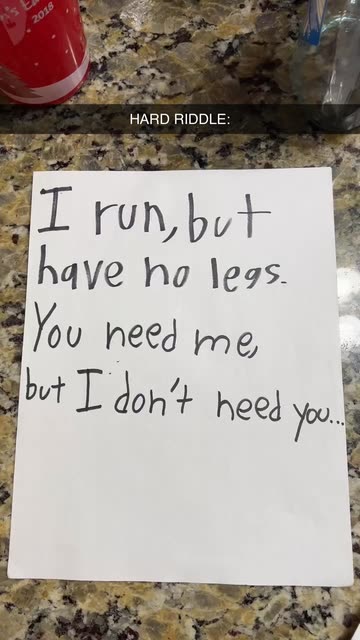 2018
HARD RIDDLE:
I run, but
have no legs.
You need me,
but I don't need you...